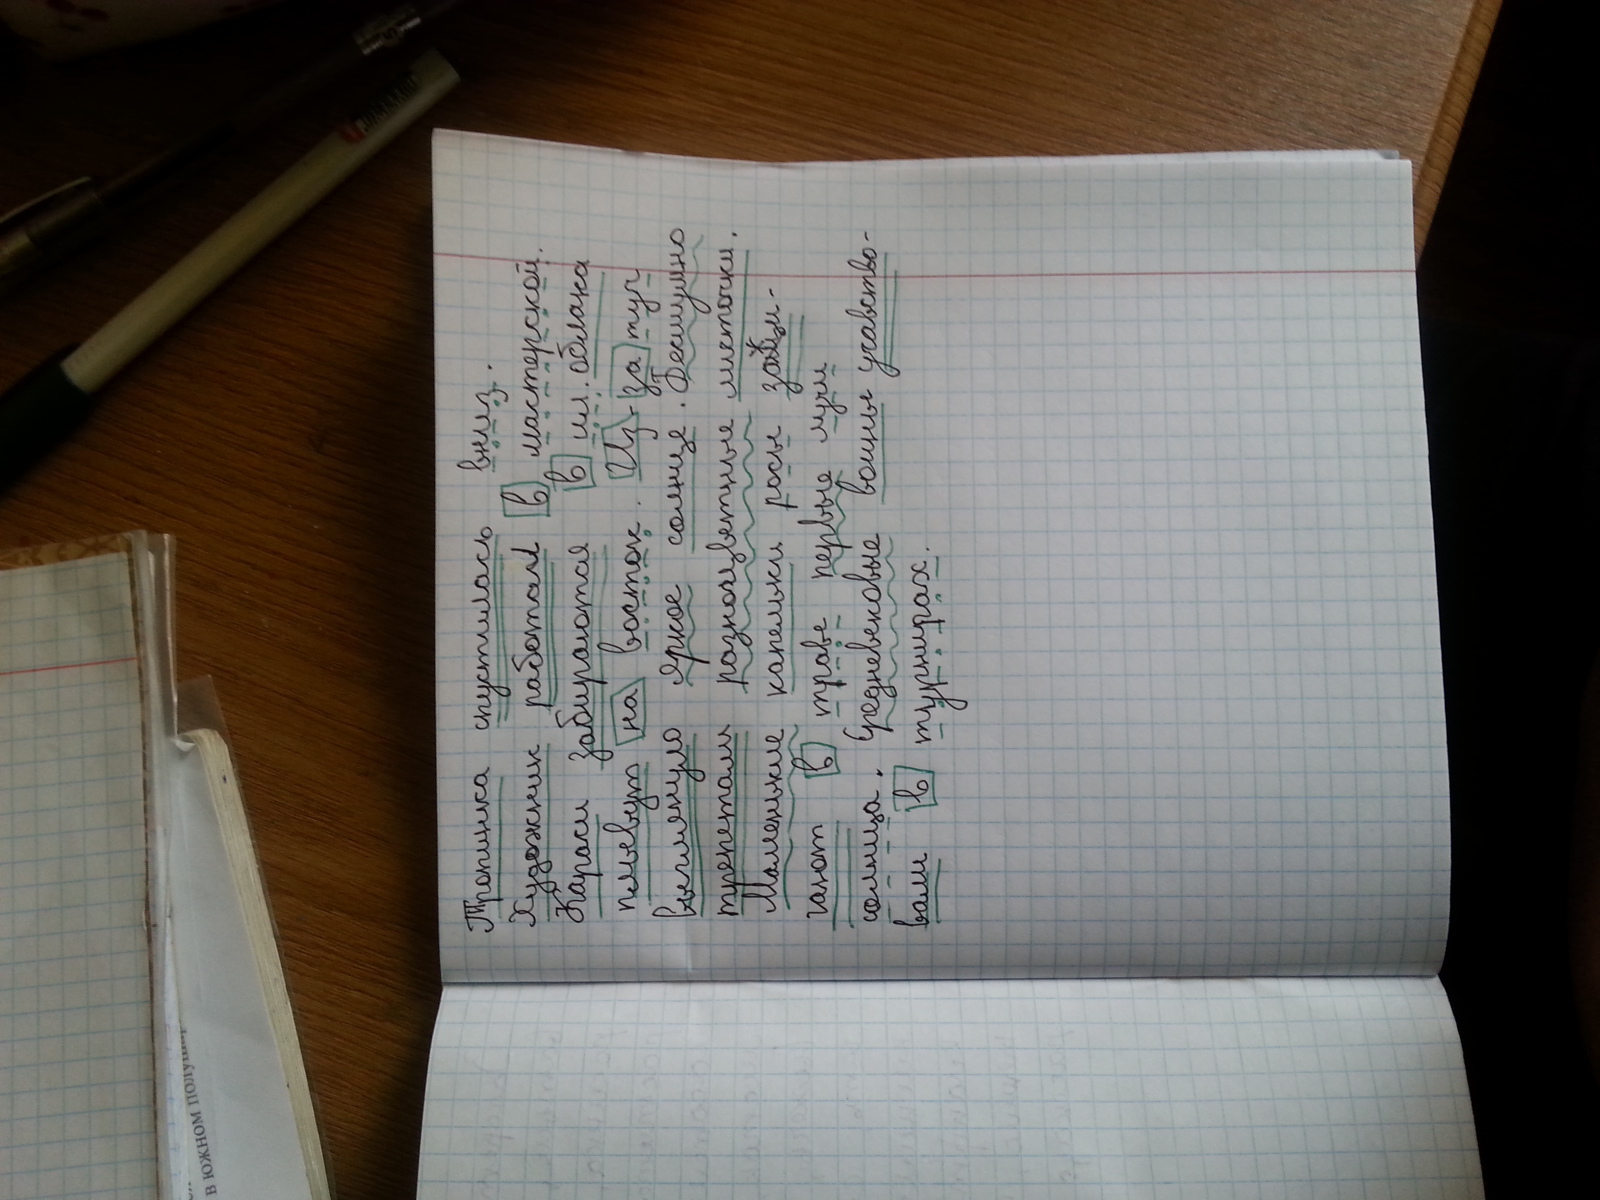 Тропинка спустилась вниз.
Художник работал в мастерской.
Караси забираются в ил. Облака
плывут на восток. Из-за туч
выглянуло яркое солнце. Бесшумно
трепетали разноцветные листочки.
Маленькие капельки росы зажи-
гают в траве первые лучи
солнца. Средневековые воины участво-
вали в турнирах.
в южном полуш